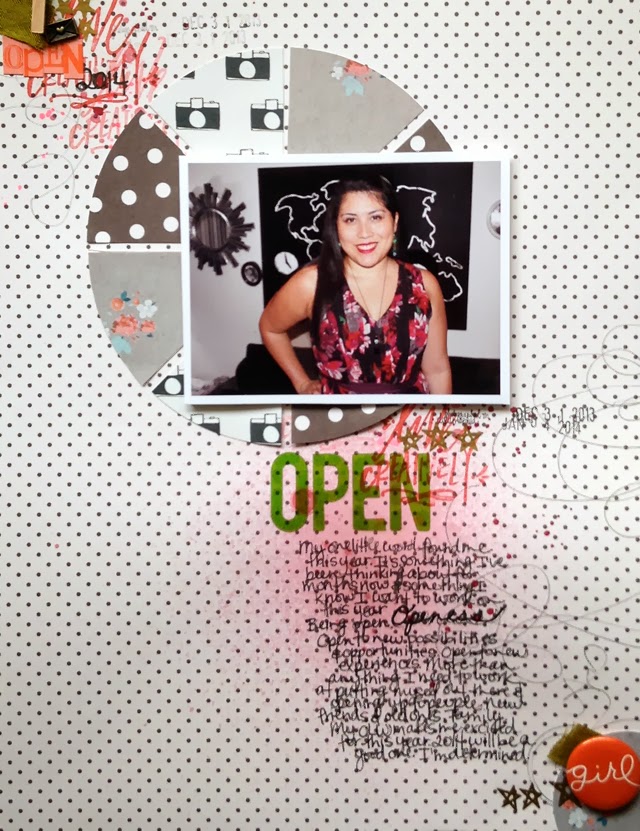 DEC 3 1 2013
OPEN
2014
CREATE
DEC 3 1 2013
JAN 2014
OPEN
My one little word found me
this year. It's something I've
been thinking about for
months now & something I
know I want to work on
this year. Openess
Being open.
Open to new possibilities
& opportunities. Open to new
experiences. More than
anything I need to work
at putting myself out there &
opening up to people. New
friends & old ones. Family.
My OLW makes me excited
for this year. 2014 will be a
good one. I'm determined!
girl